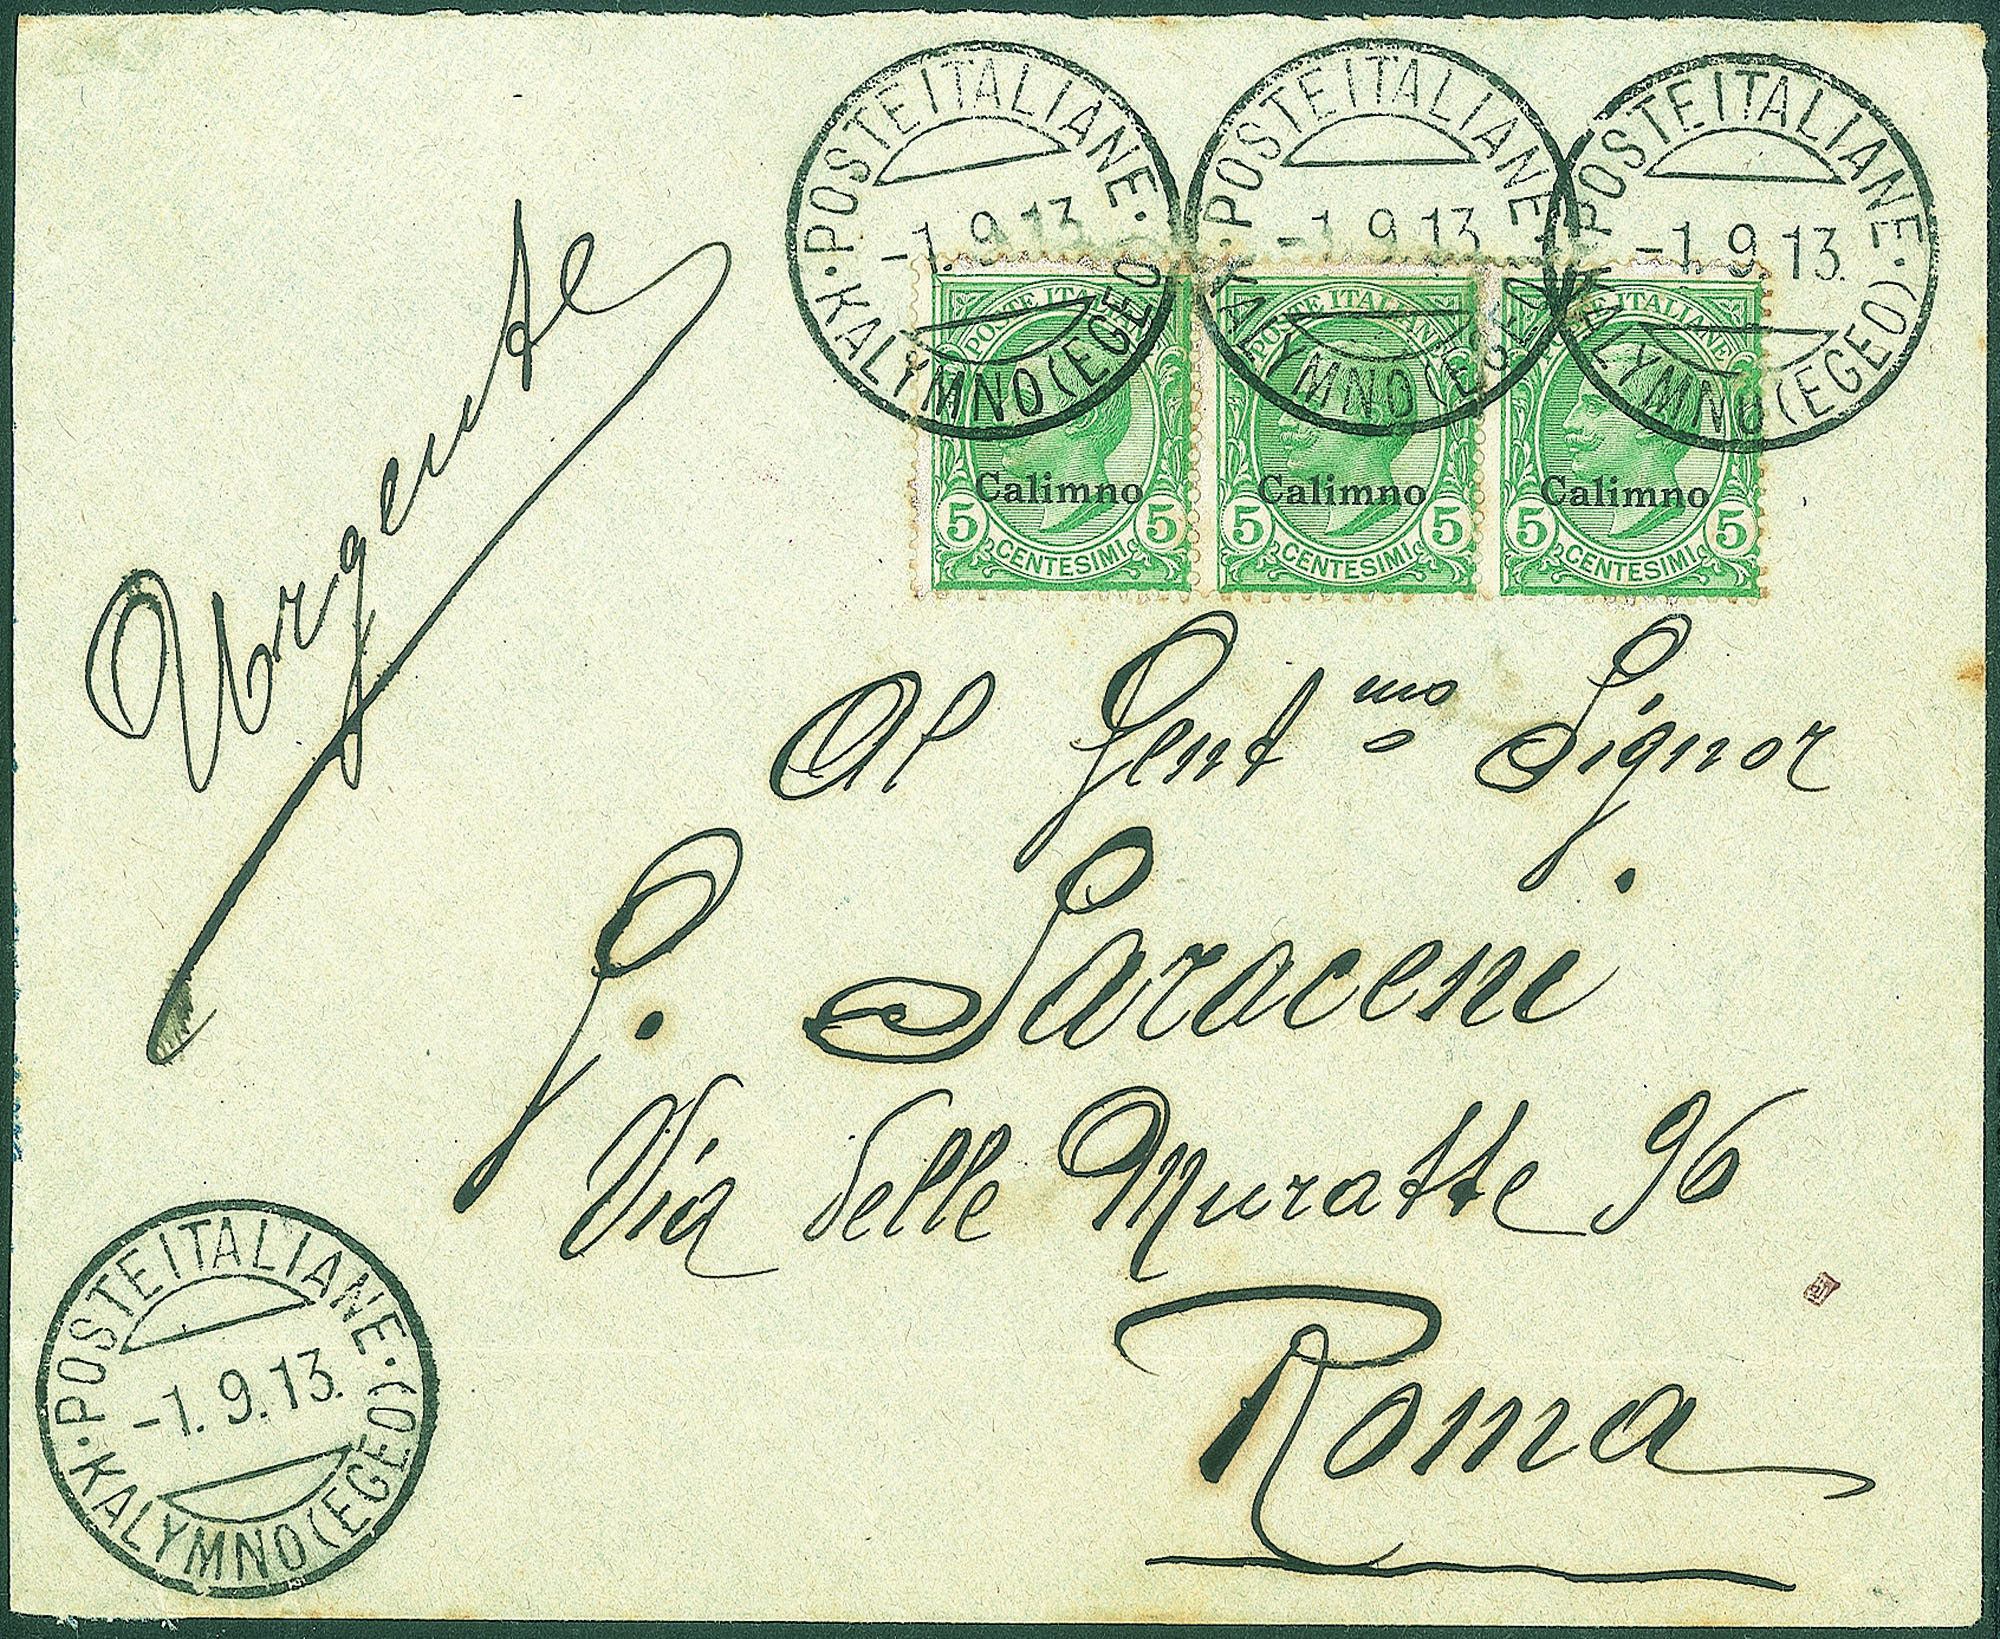 ·POSTE ITALIANE·
-1.9.13
KALYMNO (EGEO)
·POSTE ITALIANE·
-1 9 13
KALYMNO (EGEO)
·POSTE ITALIANE·
-1.9 13.
KALYMNO (EGEO)
POSTE ITALIANE
Calimno
5 5
CENTESIMI
POSTE ITALIANE
Calimno
5 5
CENTESIMI
POSTE ITALIANE
Calimno
5 5
CENTESIMI
Urgente
Al Gent mo Signor
G. Saraceni
Via delle Muratte 96
Roma
·POSTE ITALIANE·
-1.9.13.
KALYMNO (EGEO)